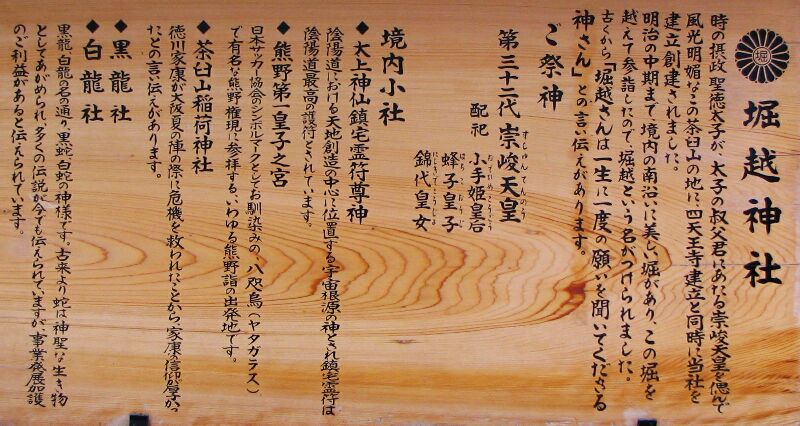 堀
堀越神社
時の摂政聖徳太子が、太子の叔父君にあたる崇峻天皇を偲んで
風光明媚なこの茶臼山の地に、四天王寺建立と同時に当社を
建立創建されました。
明治の中期まで、境内の南沿いに美しい堀があり、この堀を
越えて参詣したので、堀越という名がつけられました。
古くから「堀越さんは一生に一度の願いを聞いてくださる
神さん」との言い伝えがあります。
ご祭神
第三十二代 崇峻天皇
すしゅんてんのう
配祀
小手姫皇后
蜂子皇子
はちこおうじ
錦代皇女
境内小社
◆太上神仙鎮宅霊符尊神
陰陽道における天地創造の中心に位置する宇宙根源の神とされ鎮宅霊符は
陰陽道最高の護符とされています。
◆熊野第一皇子之宮
日本サッカー協会のシンボルマークとしてお馴染みの、八咫烏(ヤタガラス)
で有名な熊野権現に参拝する、いわゆる熊野詣の出発地です。
◆茶臼山稲荷神社
徳川家康が大阪夏の陣の際に危機を救われたことから、家康の信仰が厚かっ
たとの言い伝えがあります。
◆黒龍社
◆白龍社
黒龍、白龍の名の通り、黒蛇、白蛇の神様です。古来より蛇は神聖な生き物
としてあがめられ、多くの伝説が今でも伝えられていますが、事業発展加護
のご利益があると伝えられています。